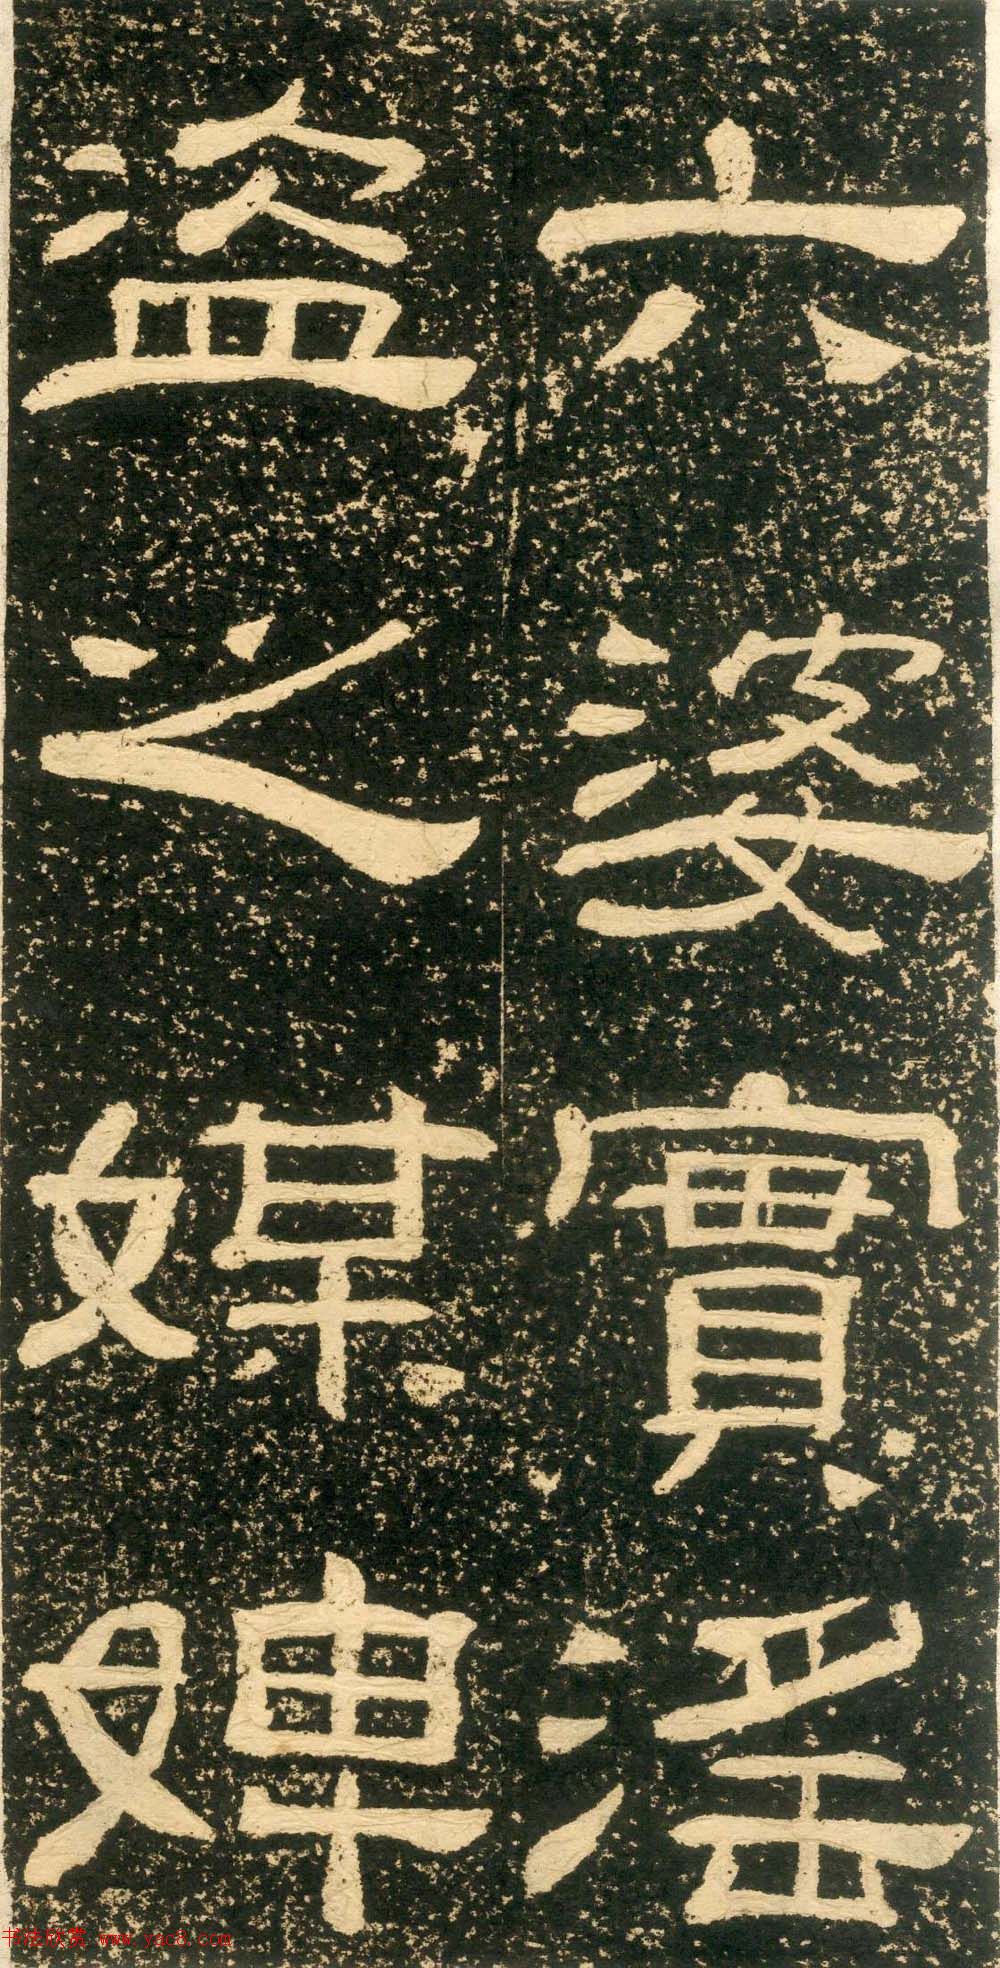 六婆實淫
盜之媒婢
书法欣赏 www.yac8.com